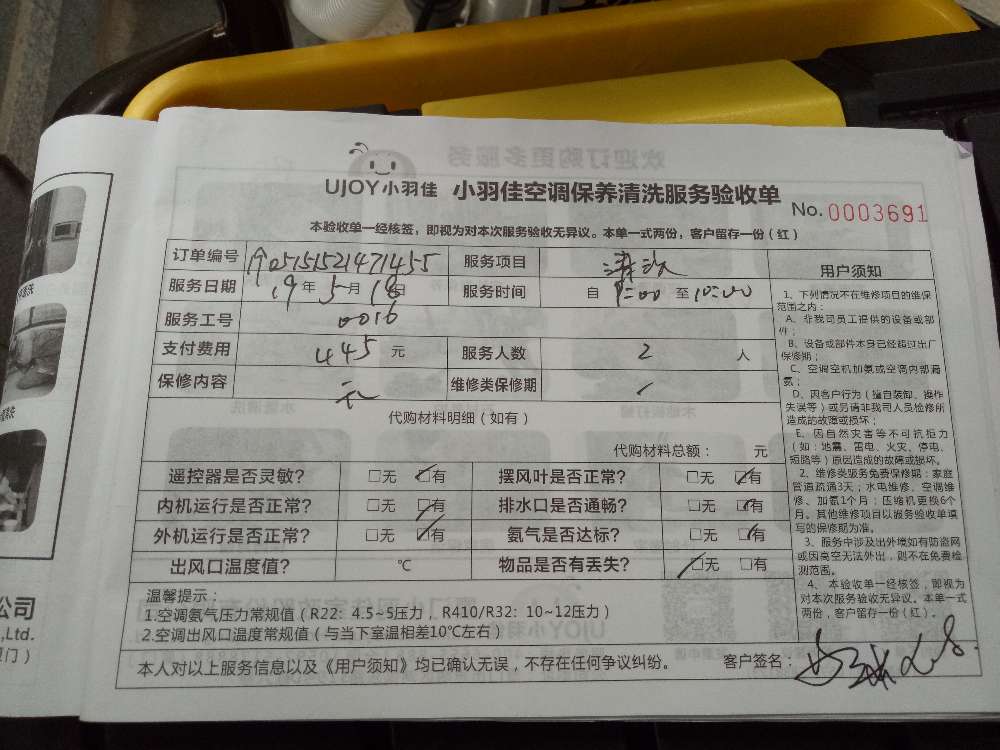 UJOY小羽佳 小羽佳空调保养清洗服务验收单 No. 0003691
本验收单一经核签，即视为对本次服务验收无异议。本单一式两份，客户留存一份（红）
订单编号 0515521471455 服务项目 清洗
服务日期 19年5月18日 服务时间 自9:00至10:00
服务工号 0016
支付费用 445元 服务人数 2人
保修内容 无 维修类保修期
代购材料明细（如有）
代购材料总额： 元
遥控器是否灵敏? □无 □有 摆风叶是否正常? □无 □有
内机运行是否正常? □无 □有 排水口是否通畅? □无 □有
外机运行是否正常? □无 □有 氨气是否达标? □无 □有
出风口温度值? ℃ 物品是否有丢失? □无 □有
温馨提示：
1.空调氨气压力常规值（R22: 4.5~5压力，R410/R32: 10~12压力）
2.空调出风口温度常规值（与当下室温相差10℃左右）
本人对以上服务信息以及《用户须知》均已确认无误，不存在任何争议纠纷。 客户签名：
用户须知
1、下列情况不在维修项目的维保
范围之内：
A、非我司员工提供的设备或部
件；
B、设备或部件本身已经超过出厂
保修期；
C、空调空机加氨或空调内部漏
氨；
D、因客户行为（擅自装卸、操作
失误等）或另请非我司人员检修所
造成的故障或损坏；
E、因自然灾害等不可抗拒力
（如：地震、雷电、火灾、停电、
短路等）原因造成的故障或损坏。
2、维修类服务免费保修期：家庭
管道疏通3天；水电维修、空调维
修、加氨1个月；压缩机更换6个
月。其他维修项目以服务验收单填
写的保修期为准。
3、服务中涉及出外境如有防盗网
或因高空无法外出，则不在免费检
测范围。
4、本验收单一经核签，即视为
对本次服务验收无异议。本单一式
两份，客户留存一份（红）。
公司
,Ltd.
门）